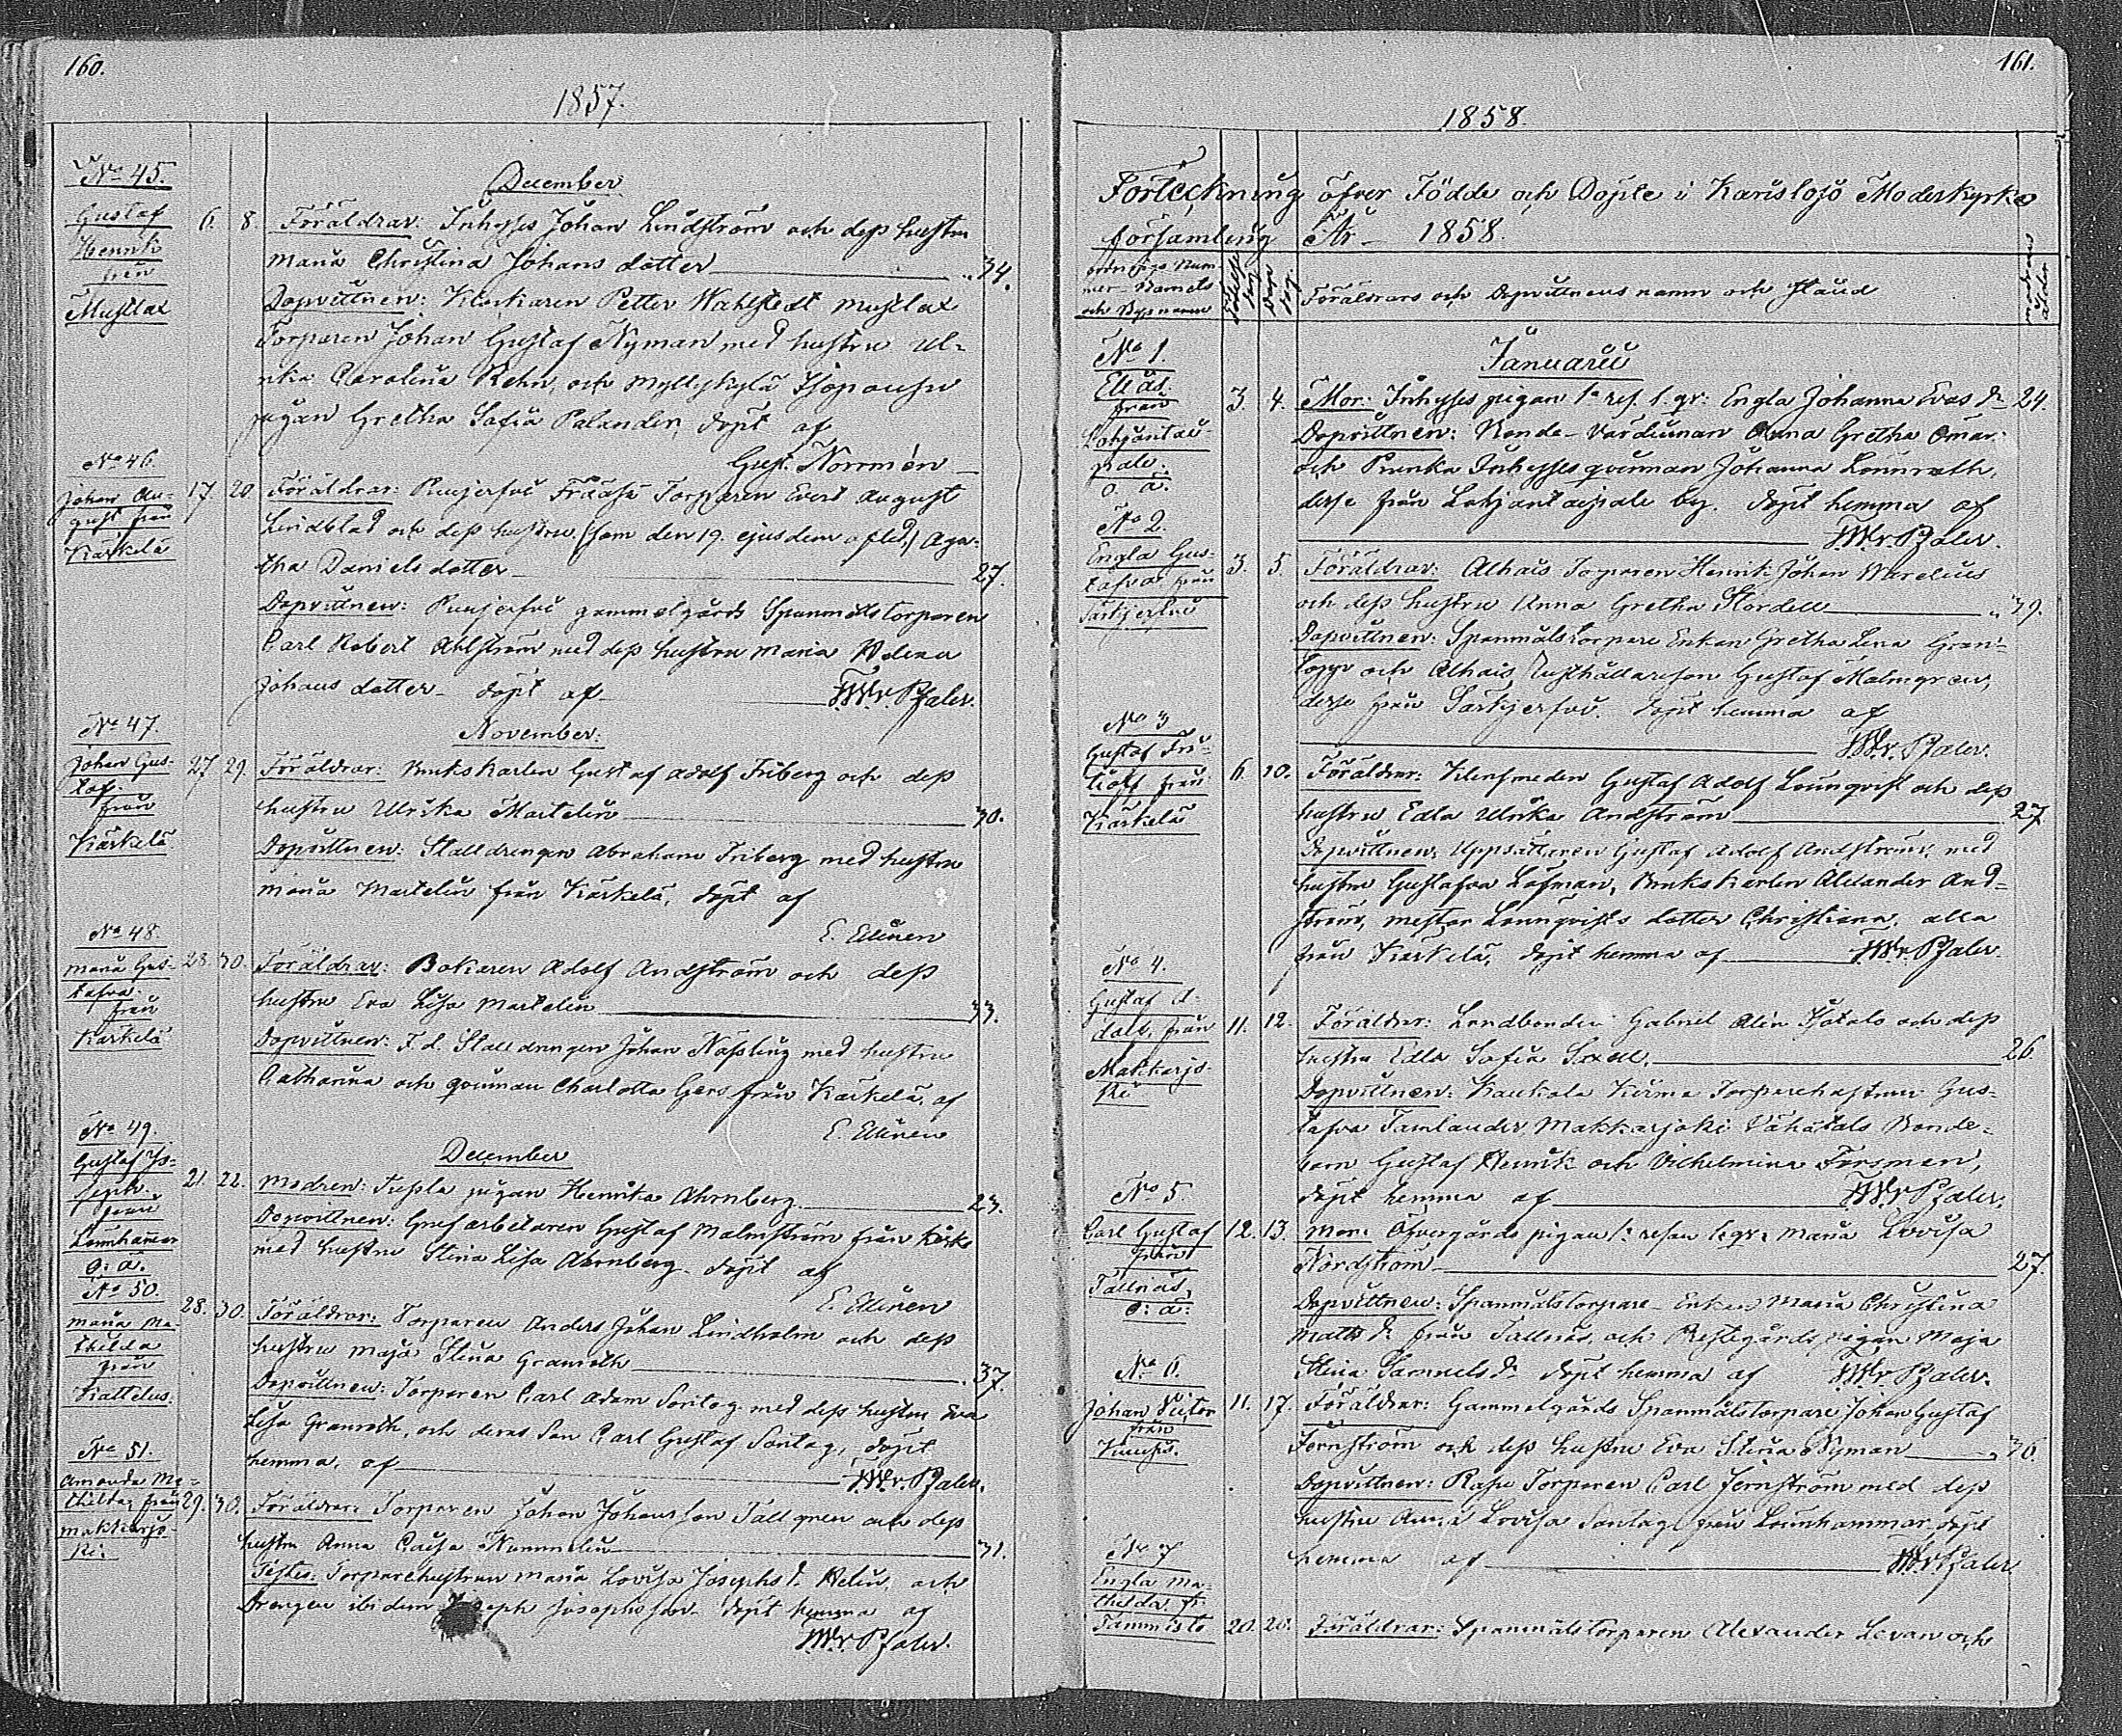 160.
1857.
No 45.
December
Gustaf
Henrik
från
Mustlax
6. 8. Föräldrar: Inhyses Johan Lindström och dess hustru
Maria Christina Johans dotter 34.
Dopvittnen: Klockaren Petter Wahlstedt Mustlax
Torparen Johan Gustaf Nyman med hustru Ul-
rika Carolina Rehn, och Myllykylä
pigan Gretha Sofia Palander, döpt af
Gust. Norrmén
No 46.
Johan Au-
gust från
Kärkelä
17. 20. Föräldrar: Torparen Evert August
Lindblad och dess hustru, (som den 19. ejusdem afled,) Aga-
tha Daniels dotter 27.
Dopvittnen: gammelgårds Spanmålstorparen
Carl Robert Ahlström med dess hustru Maria Helena
Johans dotter - döpt af F.W.v.Pfaler.
No 47.
November.
Johan Gus-
taf.
från
Kärkelä
27 29. Föräldrar: Brukskarlen Gustaf Adolf Friberg och dess
hustru Ulrika Martelin 30.
Dopvittnen: Stalldrengen Abraham Friberg med hustru
Maria Martelin från Kärkelä, döpt af
E. Ellinen
No 48.
Maria Gus-
tafva.
från
Kärkelä
28. 30. Föräldrar: Bokaren Adolf Andström och dess
hustru Eva Lisa Martelin 33.
Dopvittnen: F.d. Stalldrengen Johan Nassling med hustru
Catharina och qvinnan Charlotta Gers från Kärkelä, af
E. Ellinen
No 49.
December
Gustaf Jo-
seph.
från
Lönnhammar
o: ä.
21. 22. Modren: pigan Henrika Ahrnberg 23.
Dopvittnen: Grufarbetaren Gustaf Malmström från
med hustru Stina Lisa Ahrnberg. döpt af
E. Ellinen
No 50.
Maria Ma-
thilda
från
Kattelus.
28. 30. Föräldrar: Torparen Anders Johan Lindholm och dess
hustru Maja Stina Granroth 37.
Dopvittnen: Torparen Carl Adam Sontag med dess hustru Eva
Lisa Granroth, och deras Son Carl Gustaf Sontag, döpt
hemma, af F.W.v.Pfaler.
No 51.
Amanda Ma-
thilda, från
Makkarjo-
ki:
29. 30. Föräldrar: Torparen Johan Johansson Tallgren och dess
hustru Anna Caisa Nummelin 31.
Testes: Torparehustrun Maria Lovisa Josephs d. Helin, och
Drengen ibidem Joseph Josephsson döpt hemma af
F.W.v.Pfaler.
161.
1858.
Förteckning öfver Födde och Döpte i Karislojo Moderkyrko
församling År - 1858.
ordnings Num-
mer - Barnets
och Bynamn
Födelse
dag
Dop
dag.
Föräldrars och Dopvittnens namn och Stånd
modrens
ålder
No 1.
Januarii
Elias.
från
Lohjantai-
pale.
o. ä.
3. 4. Mor: Inhyses pigan 1a res. l. qv: Engla Johanna Evas d. 24.
Dopvittnen: Bonde-värdinnan Anna Gretha Omar
och Inhyses qvinnan Johanna Lönnroth,
desse från Lohjantaipale by. döpt hemma af
F.W.v.Pfaler.
No 2.
Engla Gus-
tafva från
Särkjerfvi
3. 5. Föräldrar: Alhais Torparen Henrik Johan Warelius
och dess hustru Anna Gretha Stordell 39.
Dopvittnen: Spanmåls torpare Enkan Gretha Lena Gran-
topp och Alhais Rusthållarson Gustaf Malmgren,
desse från Särkjerfvi. döpt hemma af
F.W.v.Pfaler.
No 3
Gustaf Fri-
tiolf från
Kärkelä
6. 10. Föräldrar: Gustaf Adolf Lönnqvist och dess
hustru Edla Ulrika Andström 27
Dopvittnen: Uppsättaren Gustaf Adolf Andström, med
hustru Gustafva Löfman, Brukskarlen Alexander And-
ström, mester Lönnqvists dotter Christiana, alla
från Kärkelä, döpt hemma af F.W.v.Pfaler.
No 4.
Gustaf A-
dolf, från
Makkarjo-
ki
11. 12. Föräldrar: Landbonden Gabriel Alén och dess
hustru Edla Sofia Saxell, 26
Dopvittnen: Kaukola Torparehustrun Gus-
tafva Tamlander, Makkarjoki Vähätalo Bonde-
barn Gustaf Henrik och Vilhelmina Forsman,
döpt hemma af F.W.v.Pfaler.
No 5.
Carl Gustaf
från
Tallnäs,
o: ä:
12. 13. Mor: Öfvergårds pigan 1a resan l. qv: Maria Lovisa
Nordström 27.
Dopvittnen: Spanmålstorpare Enkan Maria Christina
Matts d: från Tallnäs, och Prestegårds pigan Maja
Stina Samuels d: döpt hemma af F.W.v.Pfaler.
No 6.
Johan Victor
från
11. 17. Föräldrar: Gammelgårds Spanmålstorpare Johan Gustaf
Jernström och dess hustru Eva Stina Nyman 36.
Dopvittnen: Torparen Carl Jernström med dess
hustru Anna Lovisa Sontag från Lönnhammar döpt
hemma af F.W.v.Pfaler
No 7
Engla Ma-
thilda fr:
Tammisto
20. 20. Föräldrar: Spanmålstorparen Alexander Levan och